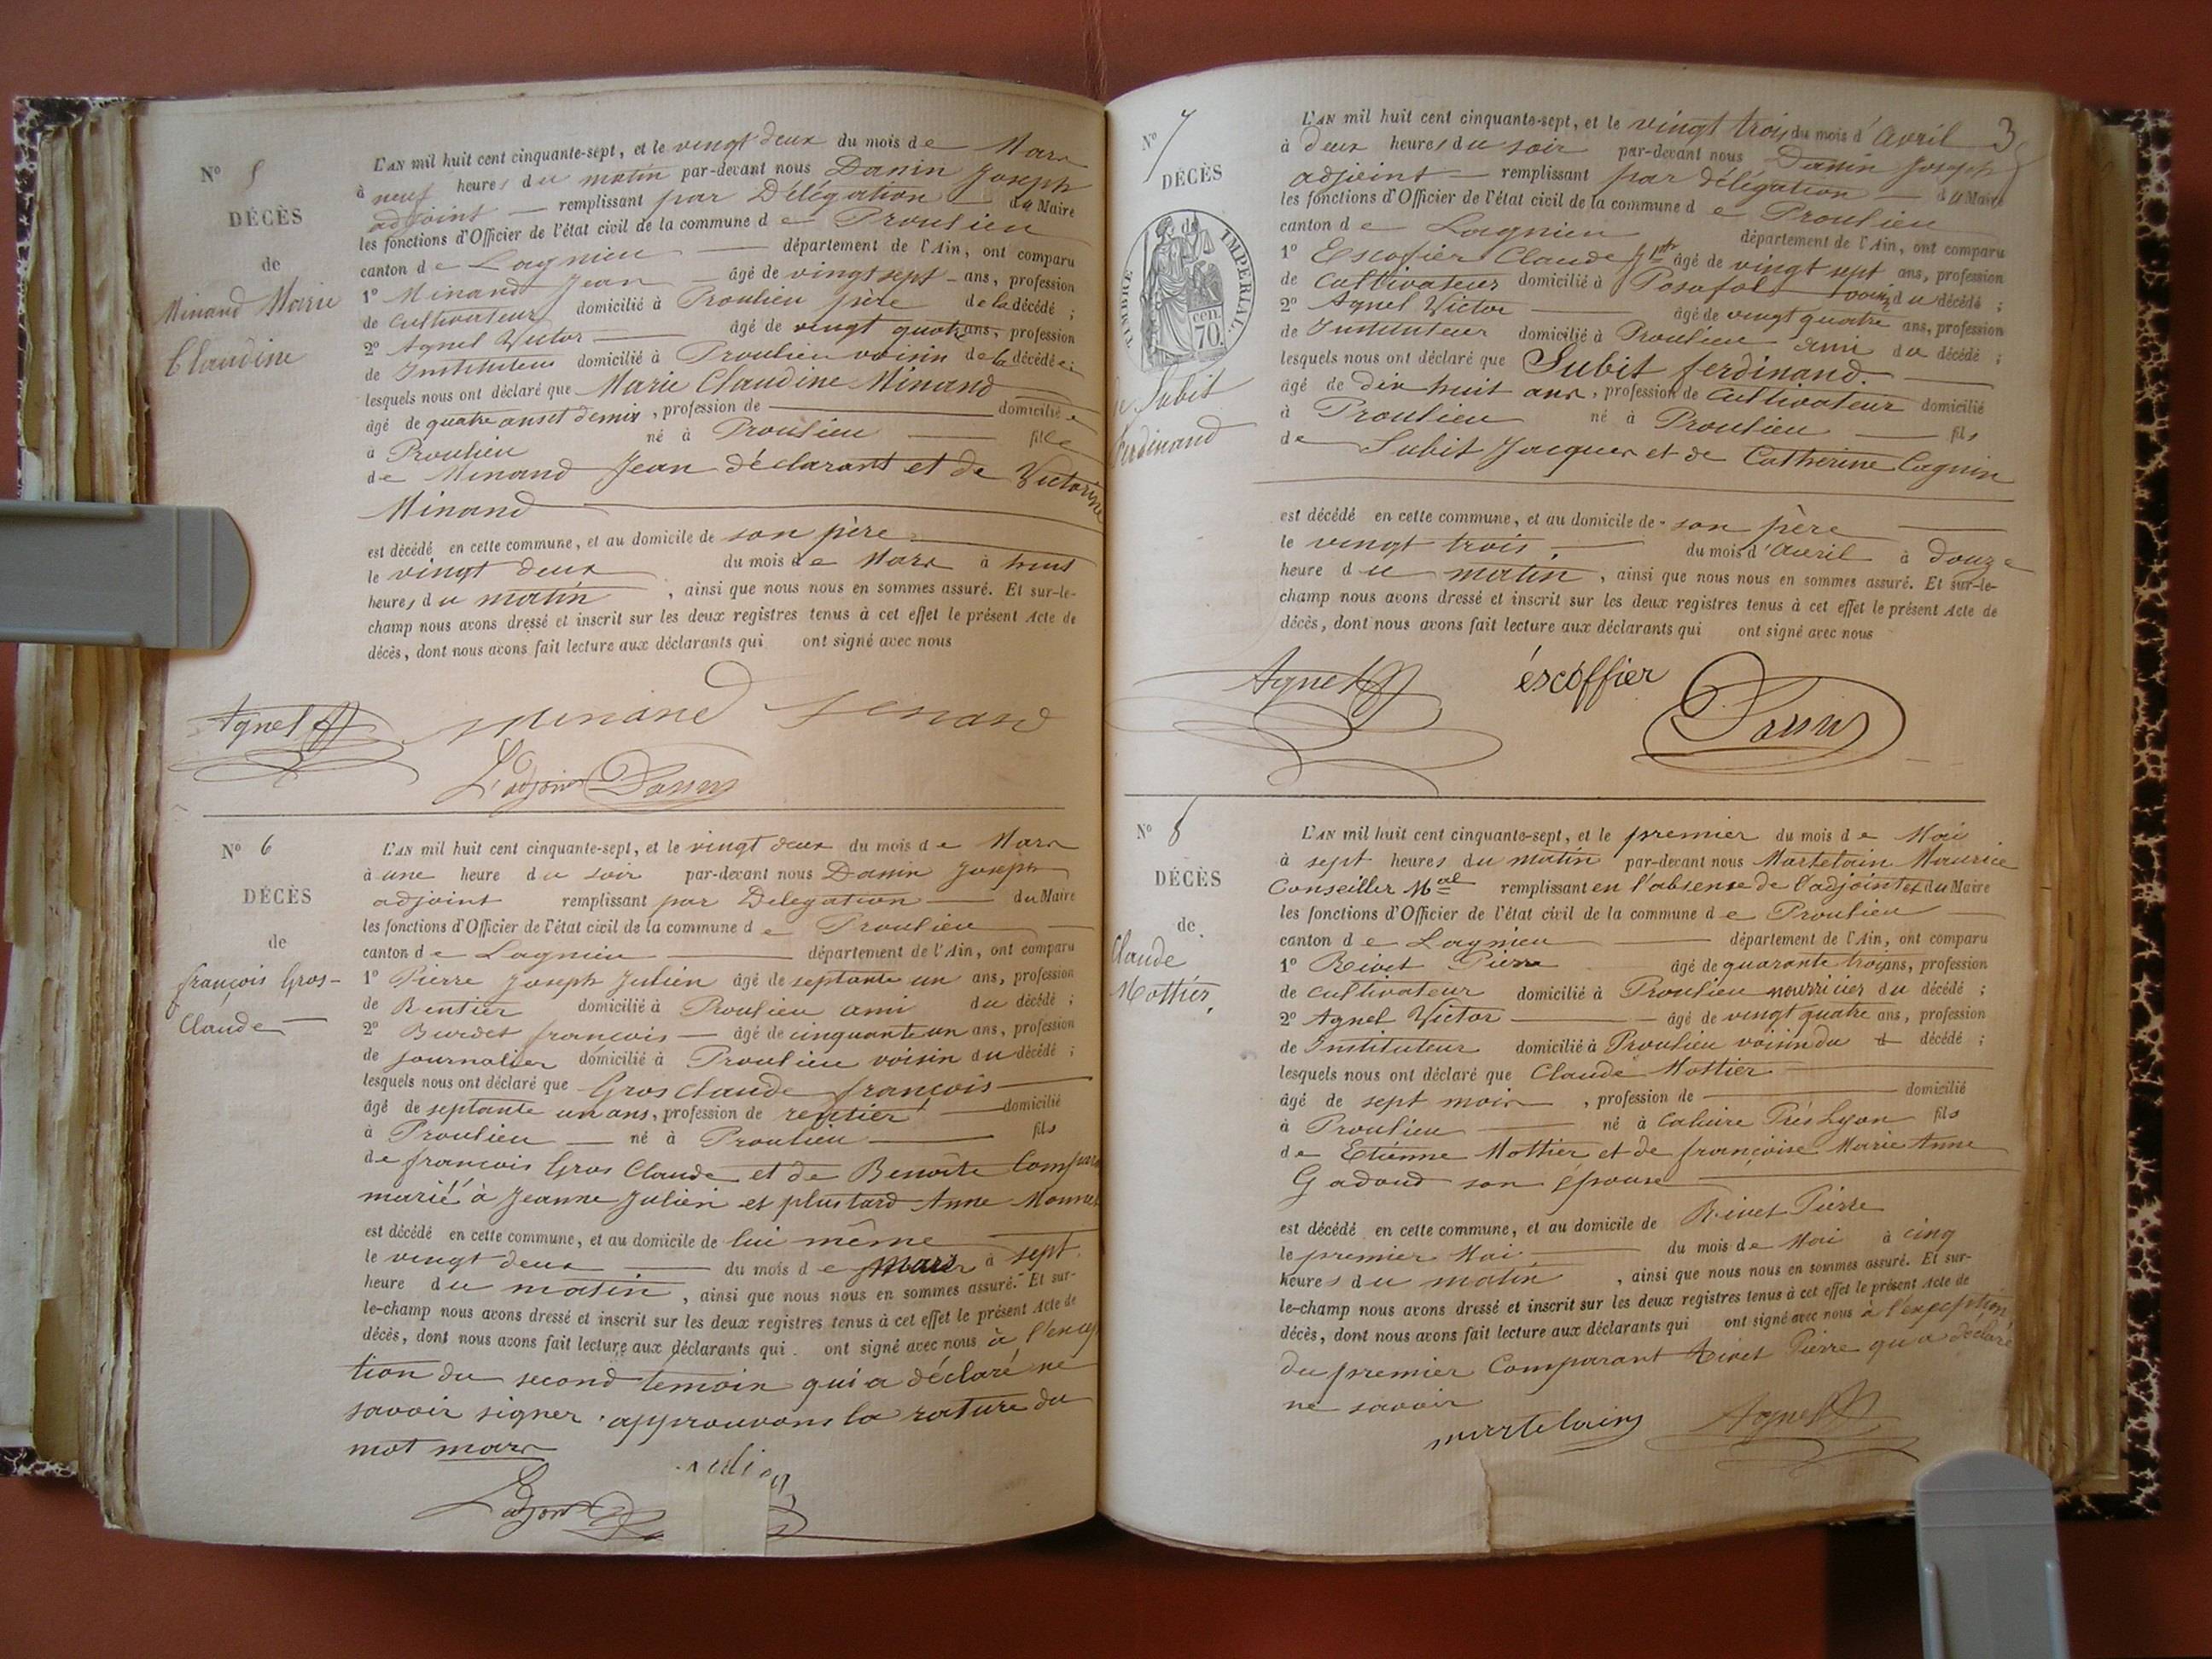 N° 5
DÉCÈS
de
Minand Marie
Claudine
L'AN mil huit cent cinquante-sept, et le vingt deux du mois de Mars
à neuf heures du matin par-devant nous Danin Joseph
adjoint — remplissant par Délégation — du Maire
les fonctions d'Officier de l'état civil de la commune de Proulieu
canton de Lagnieu — département de l'Ain, ont comparu
1° Minand Jean — âgé de vingt sept ans, profession
de Cultivateur domicilié à Proulieu père de la décédé ;
2° Agnel Victor — âgé de vingt quatre ans, profession
de Instituteur domicilié à Proulieu voisin de la décédée ;
lesquels nous ont déclaré que Marie Claudine Minand
âgé de quatre ans et demis, profession de — domicilié
à Proulieu né à Proulieu — fille
de Minand Jean déclarant et de Victorine
Minand
est décédé en cette commune, et au domicile de son père
le vingt deux du mois de Mars à huit
heures du matin, ainsi que nous nous en sommes assuré. Et sur-le-
champ nous avons dressé et inscrit sur les deux registres tenus à cet effet le présent Acte de
décès, dont nous avons fait lecture aux déclarants qui ont signé avec nous
Agnel Minand
L'adjoint Danin
N° 6
DÉCÈS
de
françois Gros-
Claude
L'AN mil huit cent cinquante-sept, et le vingt deux du mois de Mars
à une heure du soir par-devant nous Danin Joseph
adjoint remplissant par Delegation — du Maire
les fonctions d'Officier de l'état civil de la commune de Proulieu
canton de Lagnieu — département de l'Ain, ont comparu
1° Pierre Joseph Julien âgé de septante un ans, profession
de Rentier domicilié à Proulieu ami du décédé ;
2° Burdet françois — âgé de cinquante un ans, profession
de journalier domicilié à Proulieu voisin du décédé ;
lesquels nous ont déclaré que Gros claude françois
âgé de septante un ans, profession de rentier — domicilié
à Proulieu — né à Proulieu — fils
de françois Gros Claude et de Benoîte
marié à Jeanne Julien et plus tard Anne
est décédé en cette commune, et au domicile de lui même
le vingt deux — du mois de mars à sept
heure du matin, ainsi que nous nous en sommes assuré. Et sur-
le-champ nous avons dressé et inscrit sur les deux registres tenus à cet effet le présent Acte de
décès, dont nous avons fait lecture aux déclarants qui ont signé avec nous à l'excep
tion du second témoin qui a déclaré ne
savoir signer. approuvons la rature du
mot mars
L'adjoint
3
N° 7
DÉCÈS
TIMBRE IMPERIAL.
70 cen.
de Subit
Ferdinand
L'AN mil huit cent cinquante-sept, et le vingt trois du mois d'Avril
à deux heures du soir par-devant nous Danin Joseph
adjoint — remplissant par délégation — du Maire
les fonctions d'Officier de l'état civil de la commune de Proulieu
canton de Lagnieu département de l'Ain, ont comparu
1° Escofier Claude âgé de vingt sept ans, profession
de Cultivateur domicilié à Posafol voisin du décédé ;
2° Agnel Victor — âgé de vingt quatre ans, profession
de Instituteur domicilié à Proulieu ami du décédé ;
lesquels nous ont déclaré que Subit ferdinand.
âgé de dix huit ans, profession de Cultivateur domicilié
à Proulieu né à Proulieu — fils
de Subit Jacques et de Catherine Cagnin
est décédé en cette commune, et au domicile de son père
le vingt trois. — du mois d'Avril à douze
heure du matin, ainsi que nous nous en sommes assuré. Et sur-le-
champ nous avons dressé et inscrit sur les deux registres tenus à cet effet le présent Acte de
décès, dont nous avons fait lecture aux déclarants qui ont signé avec nous
Agnel éscoffier Danin
N° 8
DÉCÈS
de
Claude
Mottier
L'AN mil huit cent cinquante-sept, et le premier du mois de Mai
à sept heures du matin par-devant nous Martelain Maurice
Conseiller Mal remplissant en l'absense de l'adjoint et du Maire
les fonctions d'Officier de l'état civil de la commune de Proulieu
canton de Lagnieu — département de l'Ain, ont comparu
1° Rivet Pierre âgé de quarante trois ans, profession
de cultivateur domicilié à Proulieu nourricier du décédé ;
2° Agnel Victor — âgé de vingt quatre ans, profession
de Instituteur domicilié à Proulieu voisin du décédé ;
lesquels nous ont déclaré que Claude Mottier
âgé de sept mois, profession de — domicilié
à Proulieu — né à Caluire Près Lyon fils
de Etienne Mottier et de françoise Marie Anne
Gadoud son épouse
est décédé en cette commune, et au domicile de Rivet Pierre
le premier Mai — du mois de Mai à cinq
heures du matin, ainsi que nous nous en sommes assuré. Et sur-
le-champ nous avons dressé et inscrit sur les deux registres tenus à cet effet le présent Acte de
décès, dont nous avons fait lecture aux déclarants qui ont signé avec nous à l'exception
du premier Comparant Rivet Pierre qui a déclaré
ne savoir
martelain Agnel